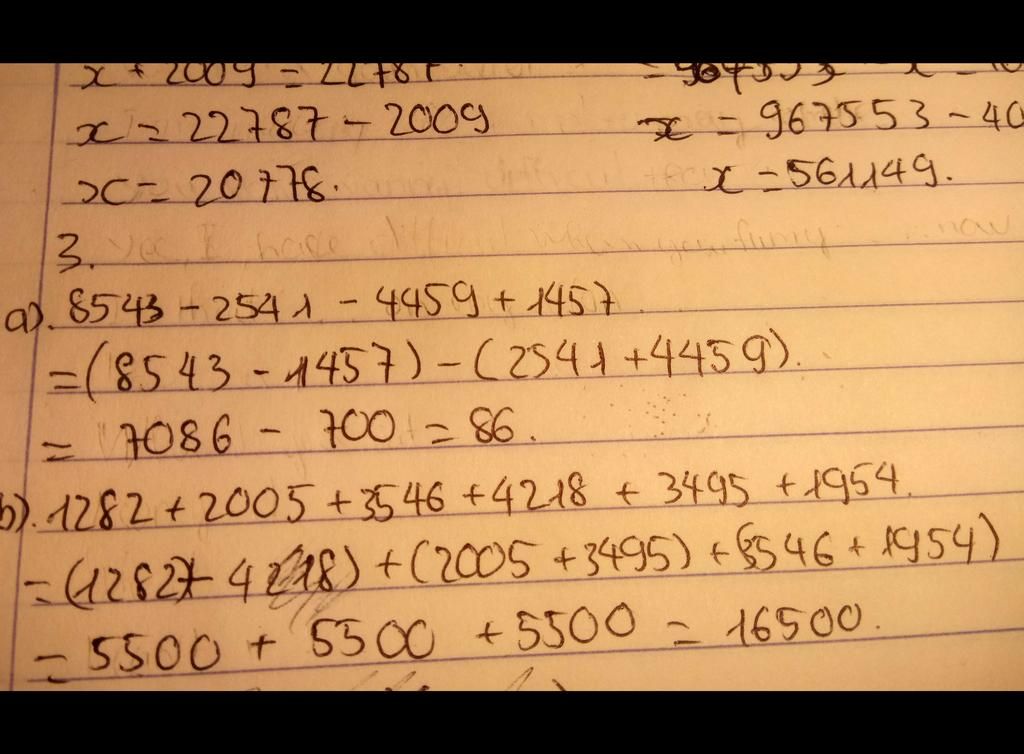 x + 2009 = 22787.
x = 22787 - 2009
x = 20778.
x = 967553 - 40
x = 561149.
3.
a). 8543 - 2541 - 4459 + 1457
= (8543 - 1457) - (2541 + 4459).
= 7086 - 700 = 86.
b). 1282 + 2005 + 3546 + 4218 + 3495 + 1954.
= (1282 + 4218) + (2005 + 3495) + (3546 + 1954)
= 5500 + 5500 + 5500 = 16500.